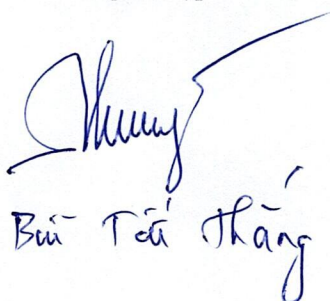 Bùi Tất Thắng